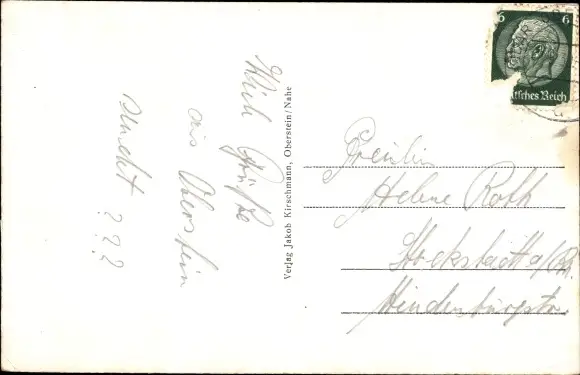 Viele Grüße
aus Oberstein
sendet ???
Verlag Jakob Kirschmann, Oberstein/Nahe
6 6
Deutsches Reich
Fräulein
Helene Roth
Stockstadt a/Rh.
Hindenburgstr.